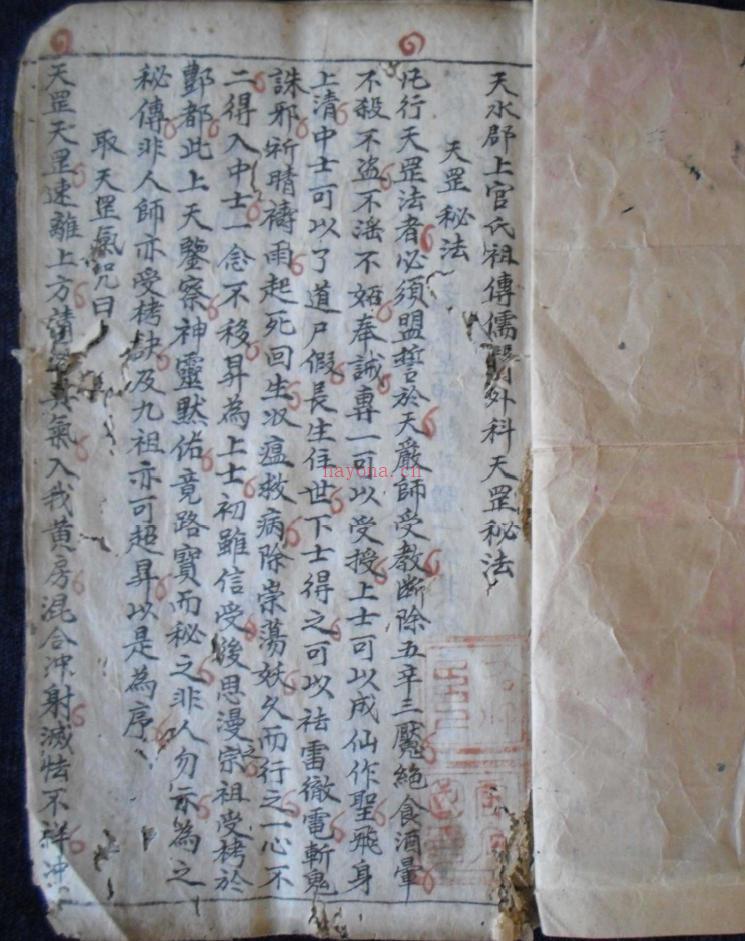 天水郡上官氏祖傳儒門外科天罡秘法
天罡秘法
凡行天罡法者必須盟誓於天嚴師受教斷除五辛三魘絕食酒暈
不殺不盜不滛不妬奉誠專一可以受授上士可以成仙作聖飛身
上清中士可以了道尸假長生住世下士得之可以祛雷徹電斬鬼
誅邪祈晴禱雨起死回生收瘟救病除祟蕩妖久而行之一心不
二得入中士一念不移昇為上士初雖信受後思漫之宗祖受栲於
酆都此上天鑒察神靈默佑竟路寶而秘之非人勿示為之
秘傳非人師亦受栲訣及九祖亦可超昇以是為序
取天罡氣咒曰
天罡天罡速離上方請 真氣入我黃房混合沖射滅恠不祥沖
nayona.cn